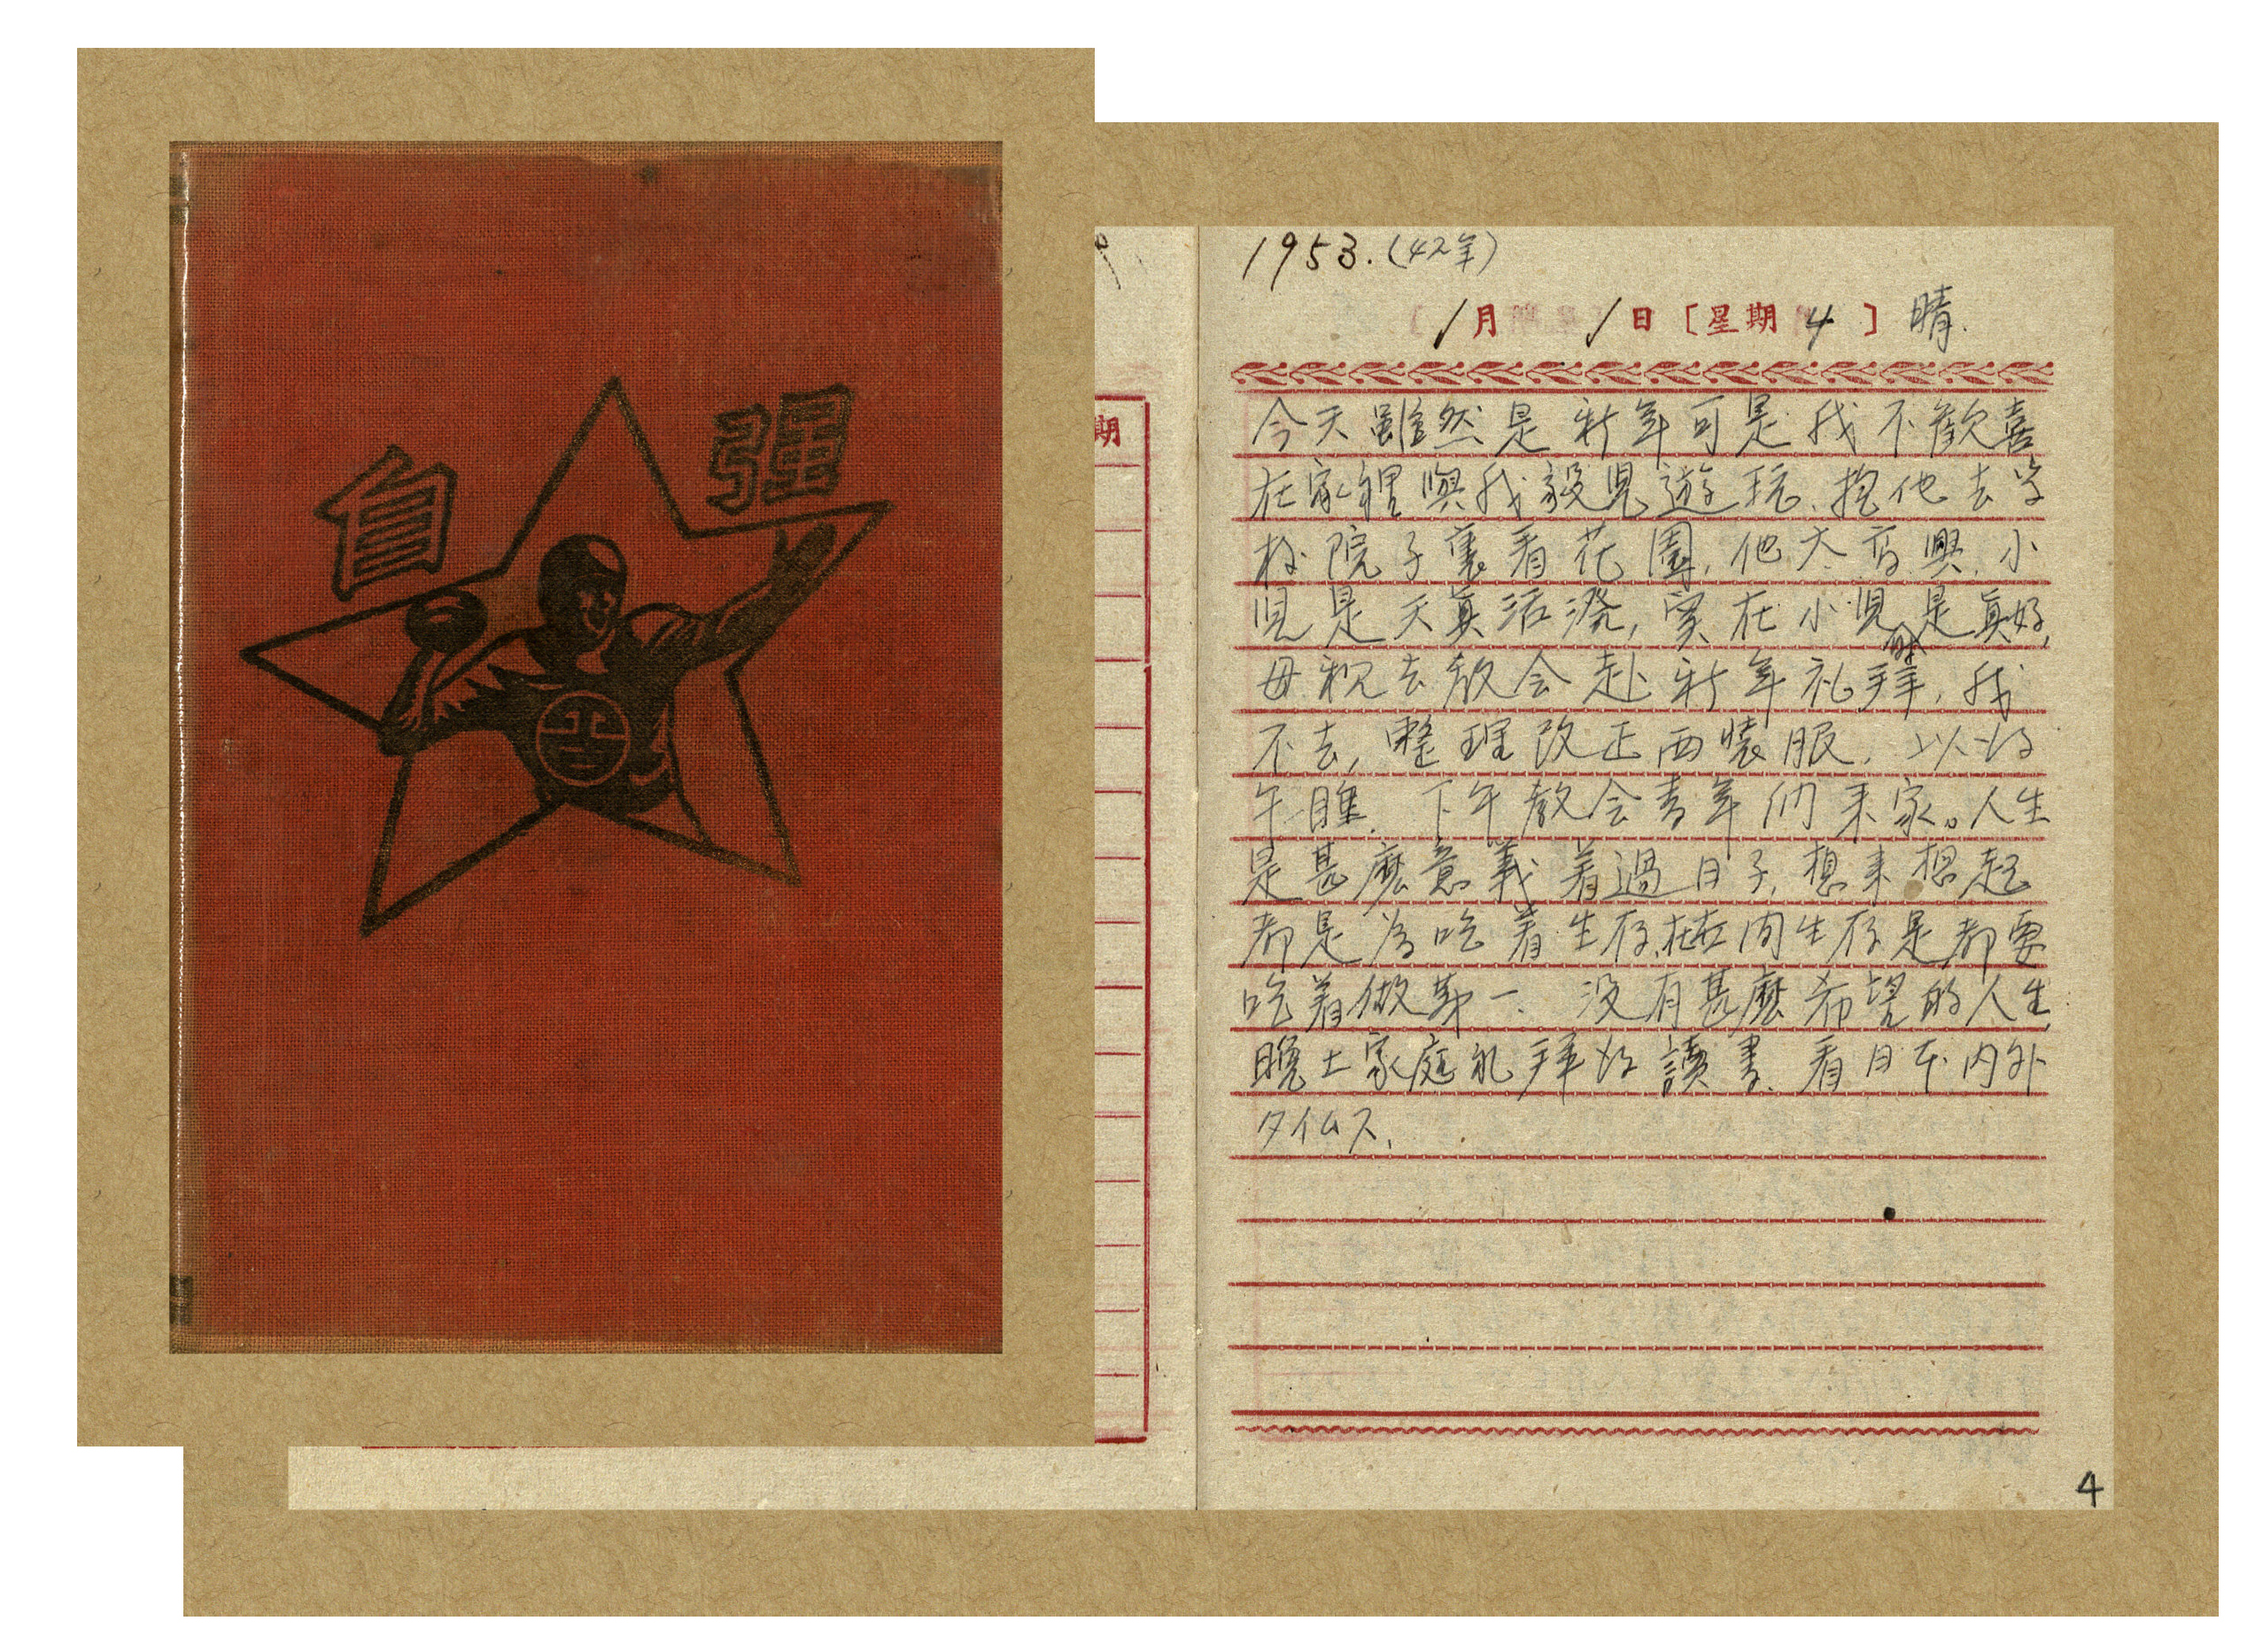 自強
期
1953.(42年)
1月 1日〔星期4〕晴.
今天雖然是新年可是我不歡喜
在家裡與我毅児遊玩、抱他去学
校院子裏看花園,他太高興,小
児是天真活潑,實在小児是真好,
母親去教会赴新年礼拜,我
不去,整理改正西装服,以后
午睡.下午教会青年们来家。人生
是甚麼意義着過日子,想来想起
都是為吃着生存,在在间生存是都要
吃着做第一.没有甚麼希望的人生,
晚上家庭礼拜后讀書、看日本内外
タイムス,
4